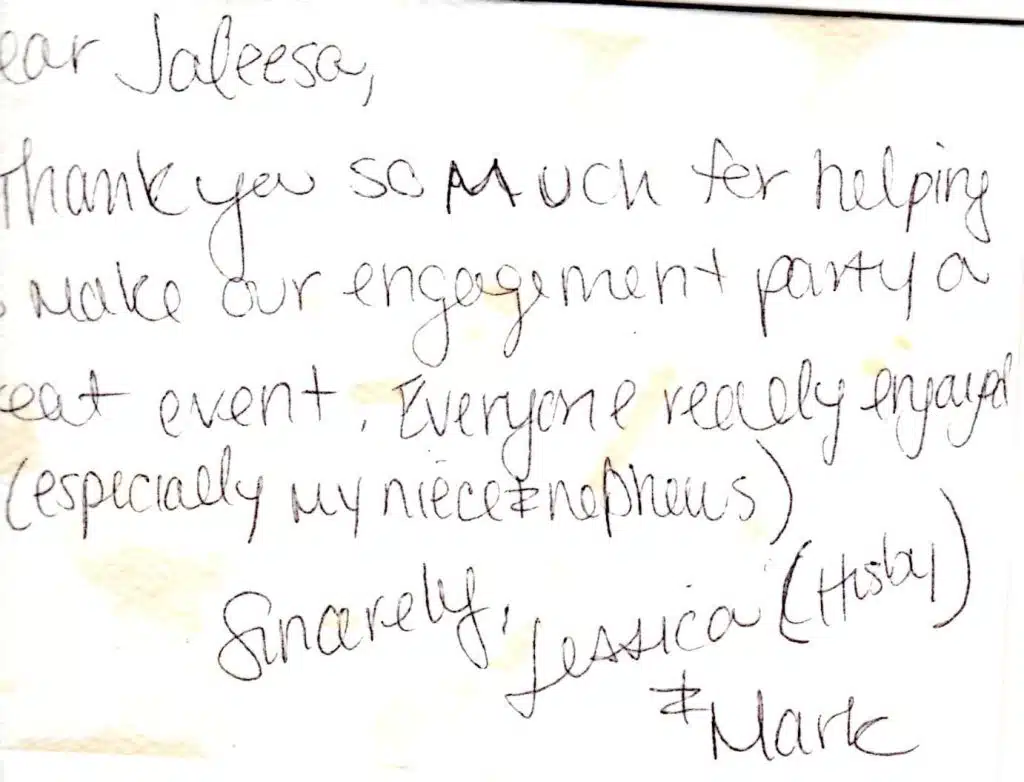 ear Jaleesa,
Thank you so Much for helping
make our engagement party a
eat event. Everyone really enjoyed
(especially my niece & nephews)
Sincerely, Jessica (Hisby)
& Mark